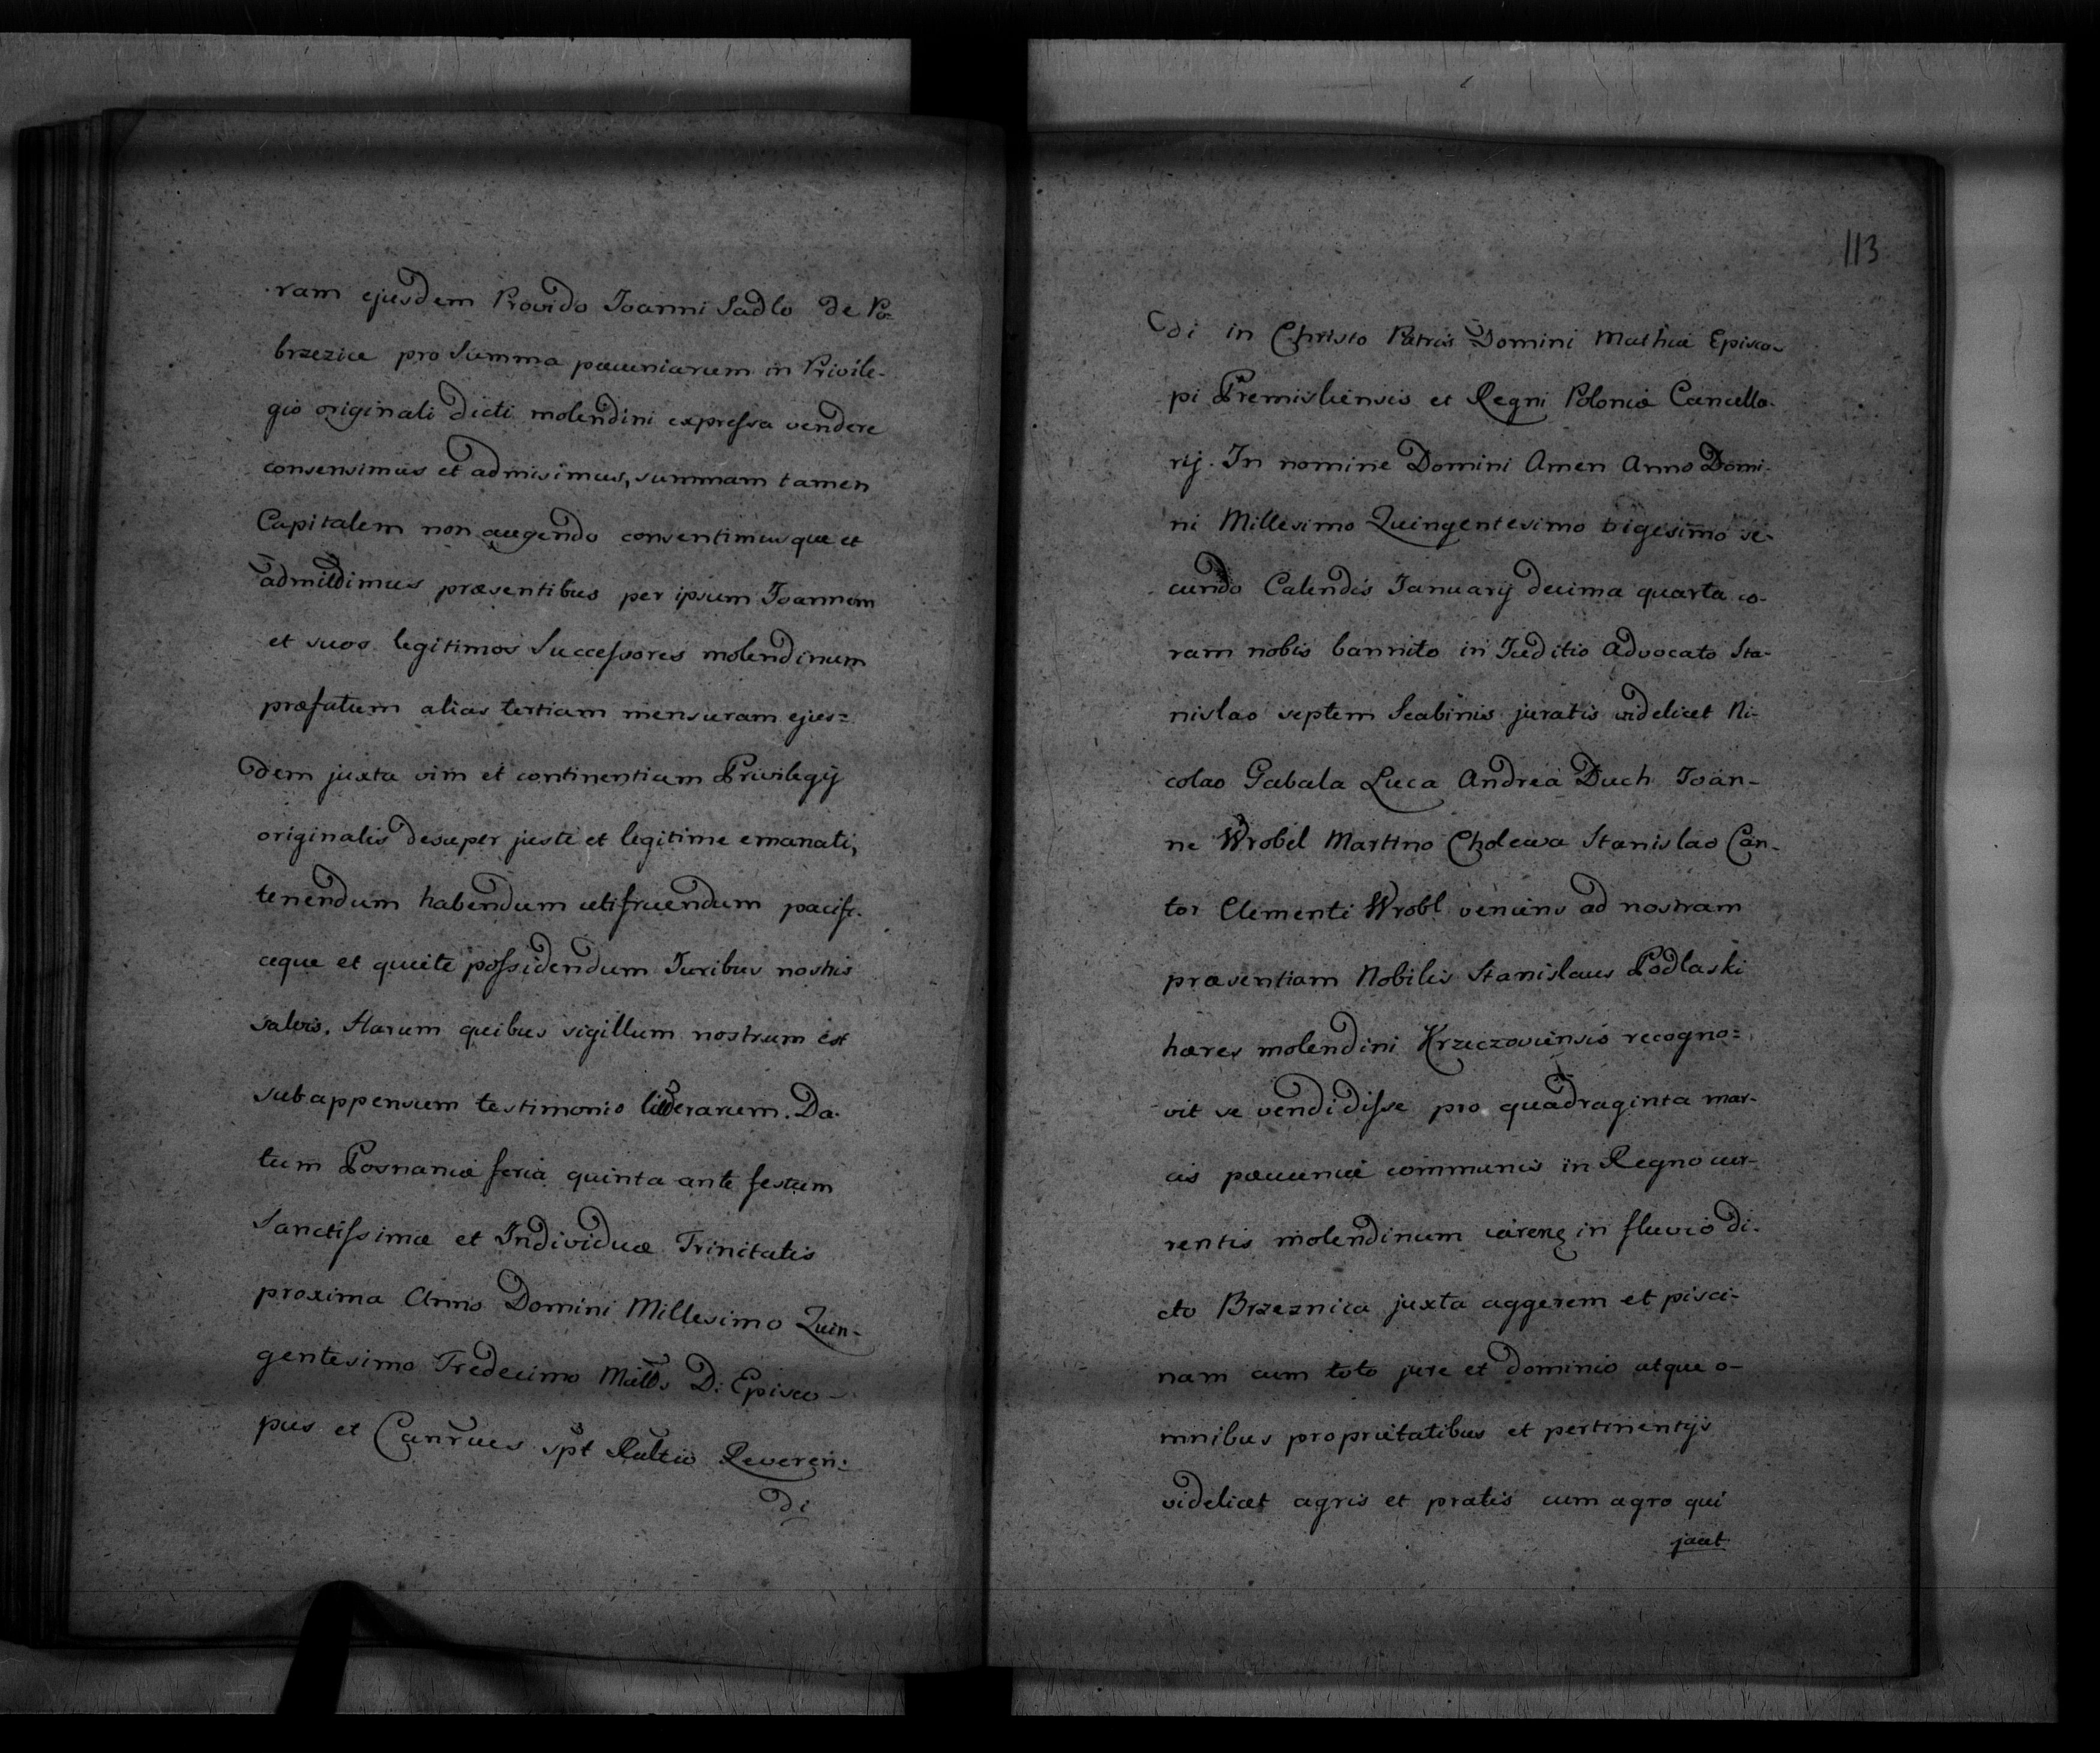 ram ejusdem Provido Joanni Sadlo de Po=
brzezice pro Summa pæcuniarum in Privile-
gio originali dicti molendini expressa vendere
consensimus et admisimus, summam tamen
Capitalem non augendo consentimusque et
admittimus præsentibus per ipsum Joannem
et suos legitimos Successores molendinum
præfatum alias tertiam mensuram ejus=
dem juxta vim et continentiam Privilegij
originalis desuper juste et legitime emanati,
tenendum habendum utifruendum pacifi-
ceque et quiete possidendum Juribus nostris
salvis. Harum quibus sigillum nostrum est
subappensum testimonio litterarum. Da-
tum Posnaniæ feria quinta ante festum
Sanctissimæ et Individuæ Trinitatis
proxima Anno Domini Millesimo Quin-
gentesimo Tredecimo Matts D: Episco-
pus et Canrues spt Raltio Reveren:
di
113
di in Christo Patris Domini Mathiæ Episco-
pi Premisliensis et Regni Poloniæ Cancella-
rij. In nomine Domini Amen Anno Domi-
ni Millesimo Quingentesimo vigesimo se-
cundo Calendis Januarij decima quarta co-
ram nobis bannito in Juditio Advocato Sta-
nislao septem Scabinis juratis videlicet Ni-
colao Gabala Luca Andrea Duch Joan-
ne Wrobel Martino Cholewa Stanislao Can-
tor Clementi Wrobl veniens ad nostram
præsentiam Nobilis Stanislaus Podlaski
hæres molendini Krzeczoviensis recogno=
vit se vendidisse pro quadraginta mar-
cis pæcuniæ communis in Regno cur-
rentis molendinum in fluvio di-
cto Brzeznica juxta aggerem et pisci-
nam cum toto jure et dominio atque o-
mnibus proprietatibus et pertinentijs
videlicet agris et pratis cum agro qui
jacet